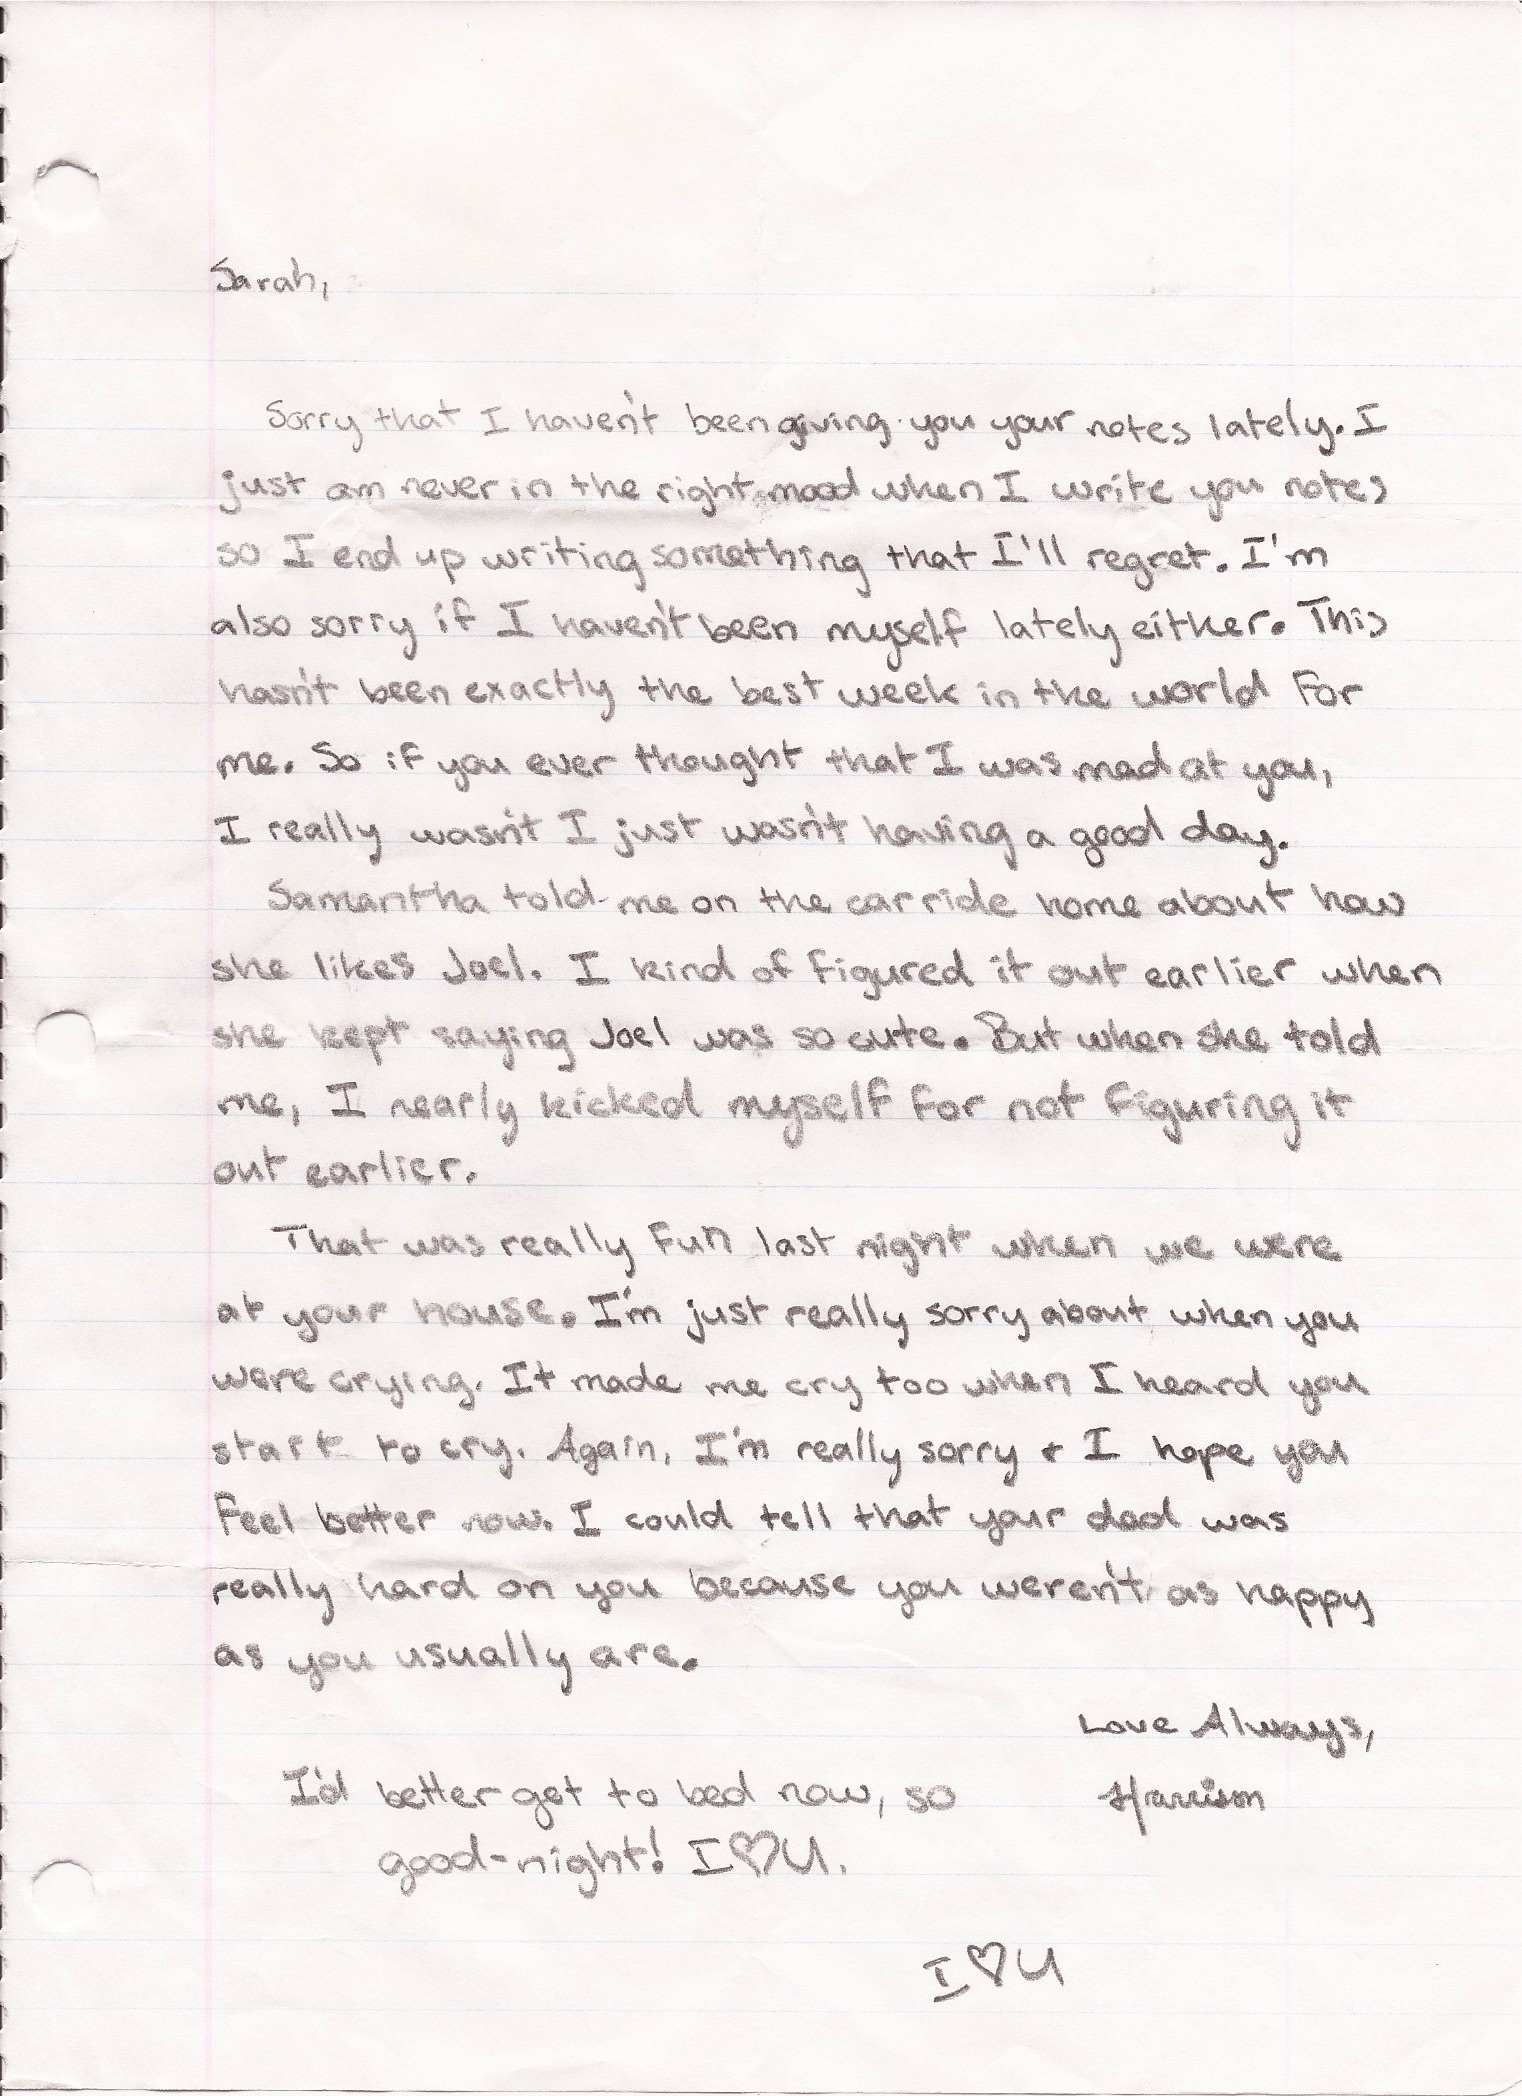 Sarah,
Sorry that I haven't been giving you your notes lately. I
just am never in the right mood when I write you notes
so I end up writing something that I'll regret. I'm
also sorry if I haven't been myself lately either. This
hasn't been exactly the best week in the world for
me. So if you ever thought that I was mad at you,
I really wasn't I just wasn't having a good day.
Samantha told me on the car ride home about how
she likes Joel. I kind of figured it out earlier when
she kept saying Joel was so cute. But when she told
me, I nearly kicked myself for not figuring it
out earlier.
That was really fun last night when we were
at your house. I'm just really sorry about when you
were crying. It made me cry too when I heard you
start to cry. Again, I'm really sorry + I hope you
feel better now. I could tell that your dad was
really hard on you because you weren't as happy
as you usually are.
Love Always,
Harrison
I'd better get to bed now, so
good-night! I ♡ U.
I ♡ U